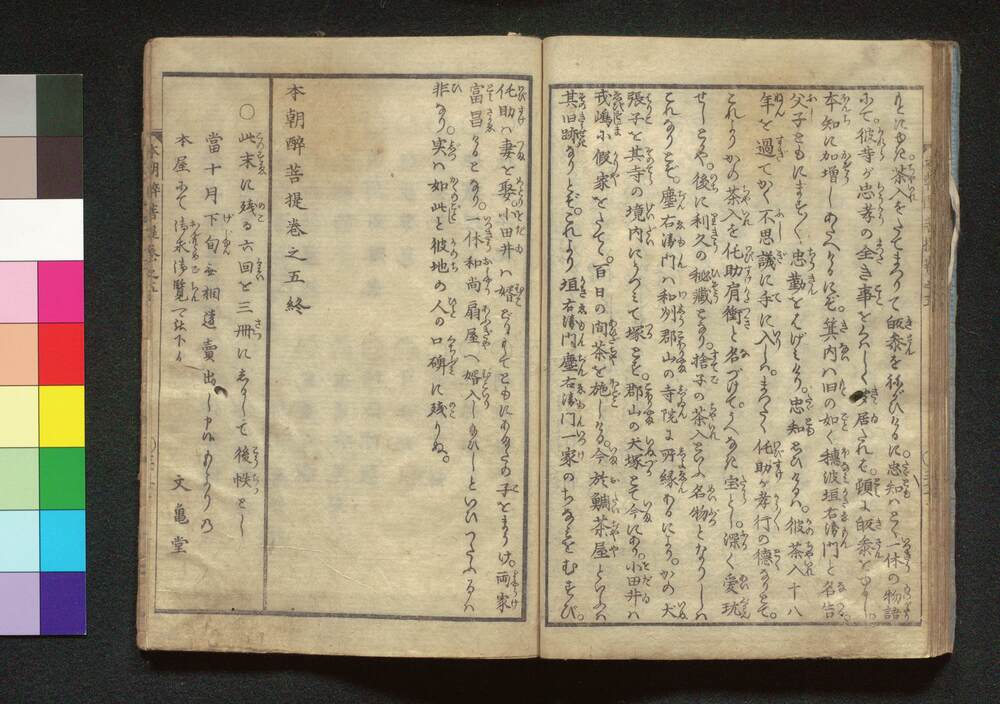 りとともに茶入をたてまつりて皈泰を祢がひけるに。忠知いと〴〵一休の物語
にて。彼寺が忠孝の全き事をくはしく居たれを。頓に皈泰をゆるし。
本知に加増してあたへけるにぞ。箕内ハ旧の如く穂波垣右衛門と名告
父子ともにます〳〵忠勤をはげミけり。忠知もひける八。彼茶入十八
年を過てかく不思議に手に入しハ。まつたく仛助が孝行の德なりとて。
これよりかの茶入を仛助肩衝と名づけて。いへの宝とし。深く愛玩
せしとぞや。後に利久の秘藏となり。捨子の茶入といふ名物となりしハ
これなりとぞ。塵右衛門ハ和刕郡山の寺院に所縁あるにより。かの犬
張子を其寺の境内にうづミて塚とす。郡山の犬塚とて今にあり。小田井ハ
戎嶋に假家をたて。百日の間茶を施しける。今於鯛茶屋といふハ
其旧跡なりとぞ。これより垣右衛門塵右衛門一家のちなミをむすび。
仛助ハ妻を娶。小田井ハ婿どりしてともにあまたの子をまうけ。両家
富昌けるとなり。一休和尚扇屋へ婿入し給ひしといひつたふるハ
非なり。実ハ如此と彼地の人の口碑に残りぬ。
本朝酔菩提巻之五終
○此末に残る六回を三冊にわかして後帙とし
當十月下旬無相違賣出し申候あひだ乃
本屋にて御求御覧可被下候
文亀堂
本朝酔菩提巻之五